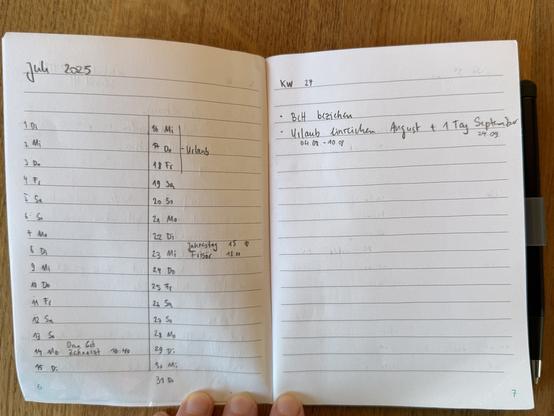 Juli 2025
1 Di
2 Mi
3 Do
4 Fr
5 Sa
6 So
7 Mo
8 Di
9 Mi
10 Do
11 Fr
12 Sa
13 So
14 Mo Zahnarzt 10:40
15 Di
16 Mi
17 Do - Urlaub
18 Fr
19 Sa
20 So
21 Mo
22 Di
Jahrestag
23 Mi Frisör
24 Do
25 Fr
26 Sa
27 So
28 Mo
29 Di
30 Mi
31 Do
6
KW 27
• Bett beziehen
• Urlaub einreichen August + 1 Tag September
04.08 - 10.08 24.09
7